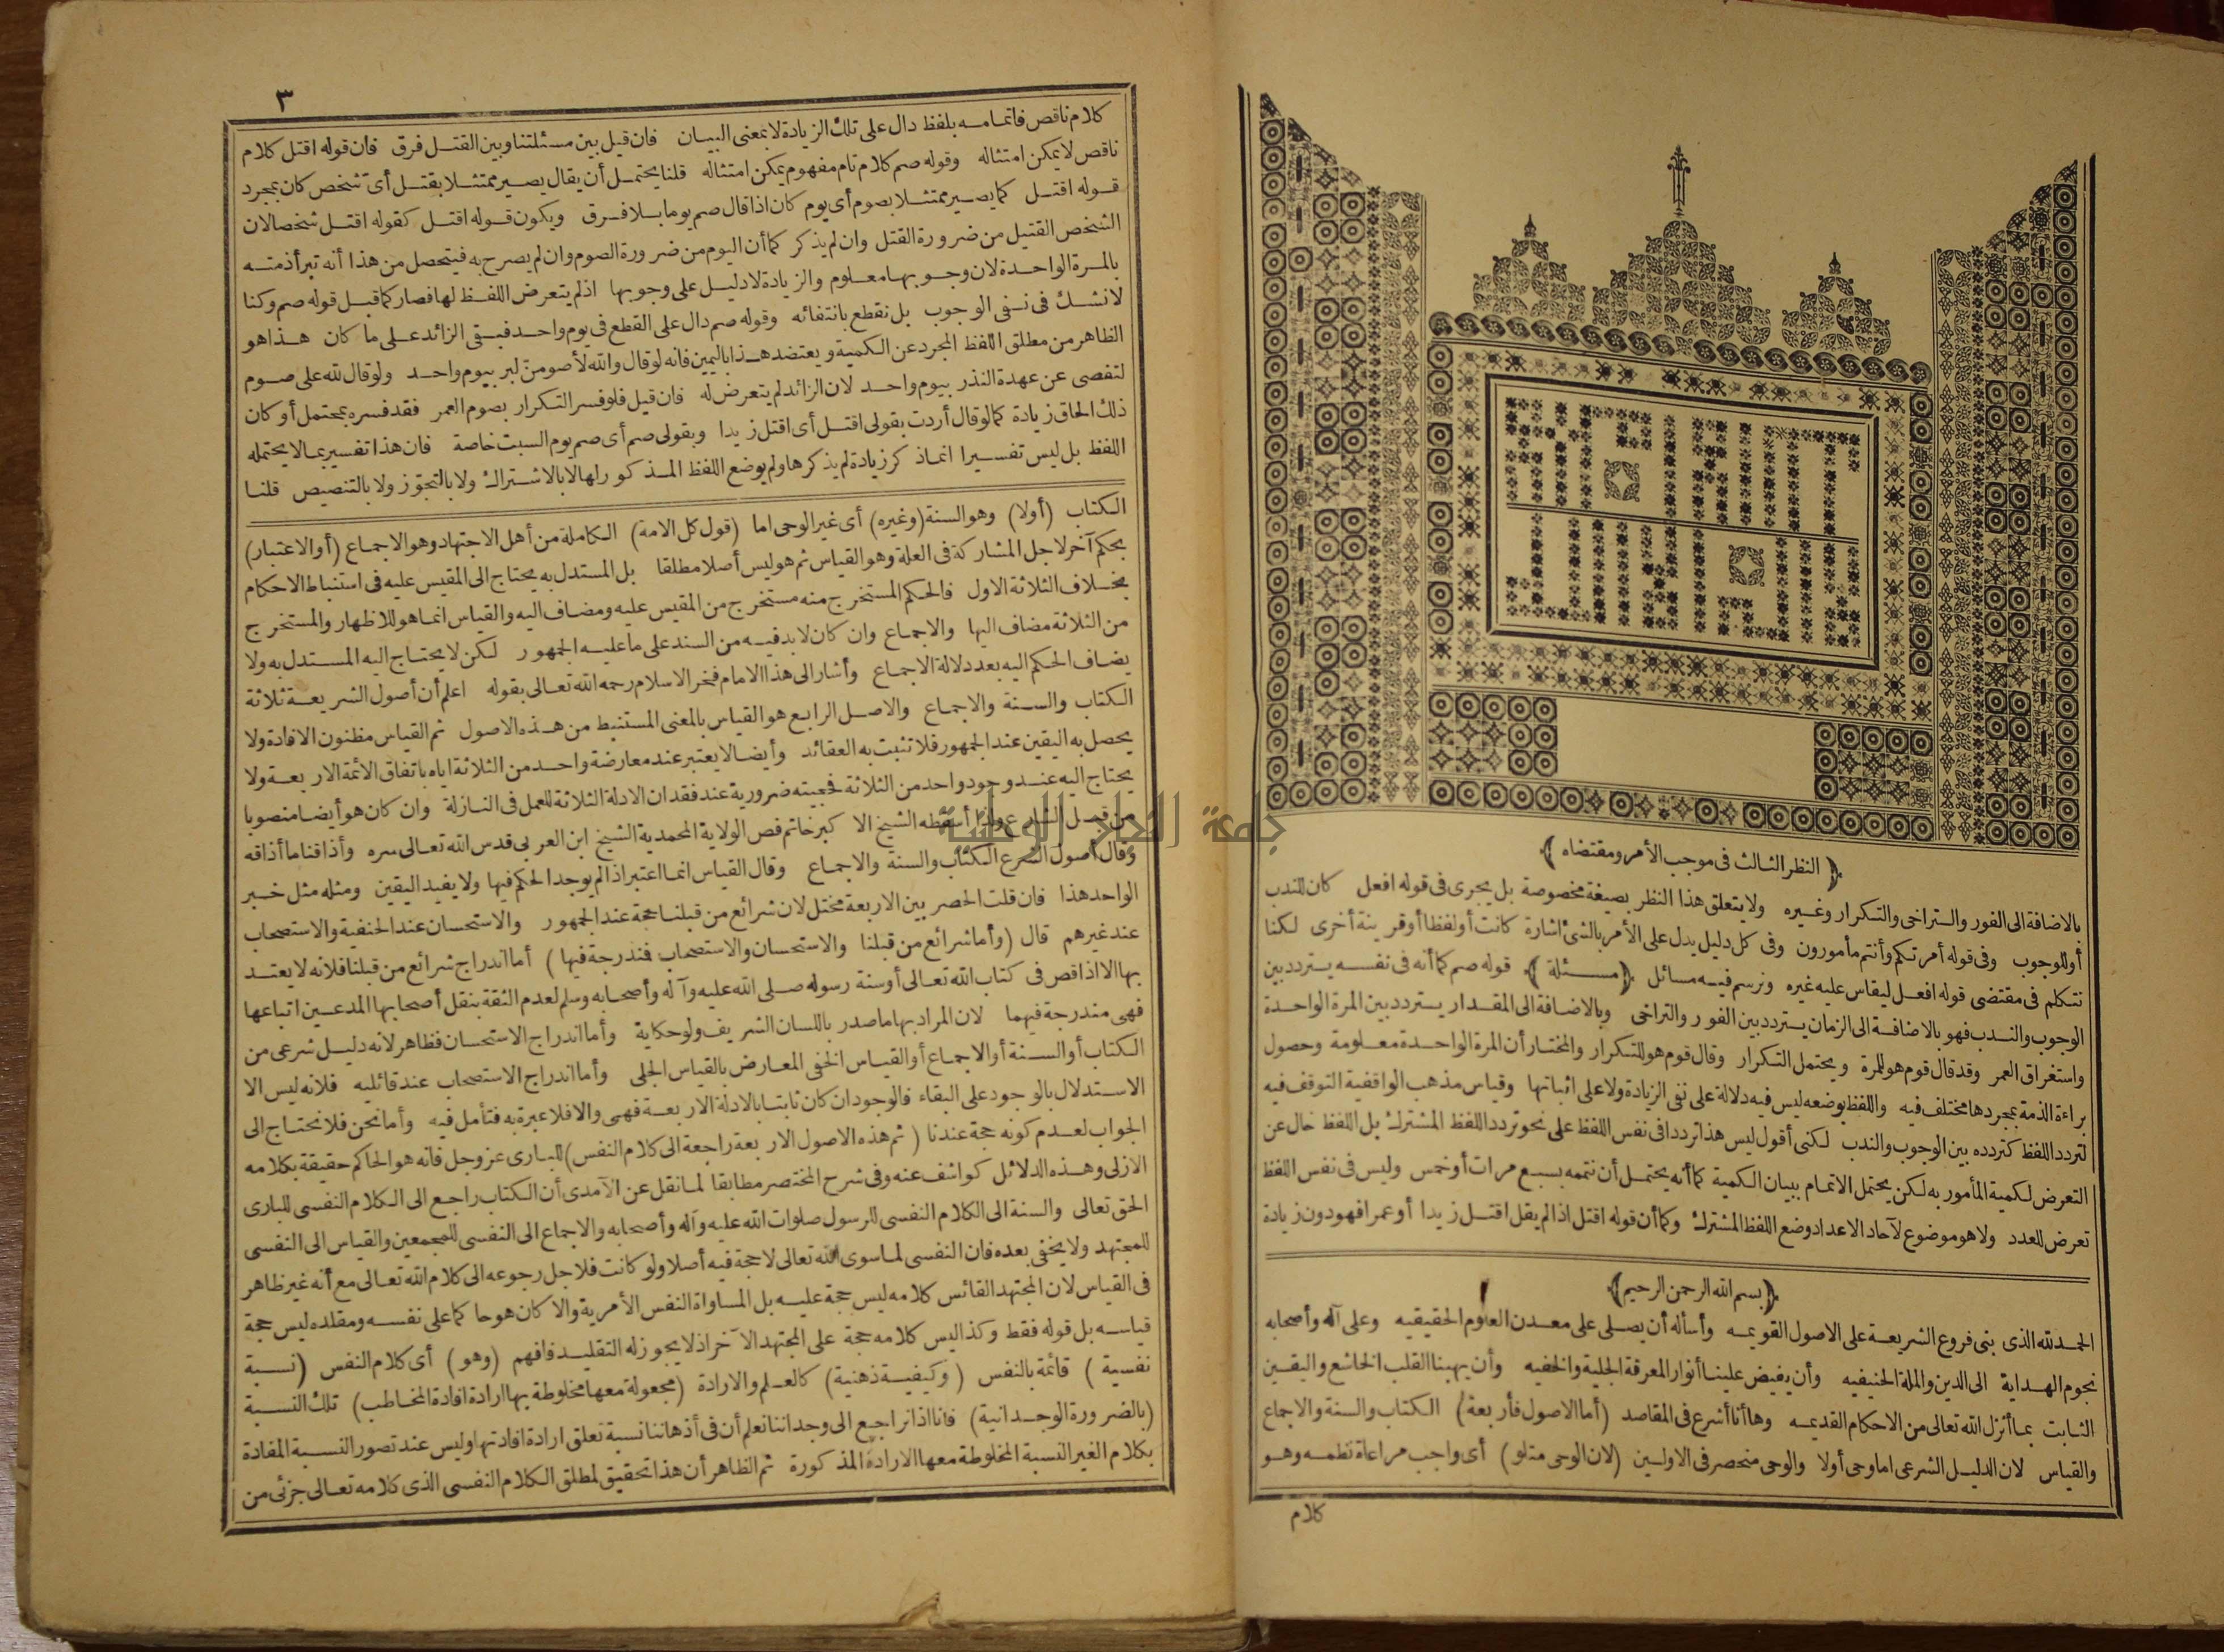 ﴿النظر الثالث فى موجب الأمر ومقتضاه﴾
بالاضافة الى الفور والتراخى والتكرار وغيره ولا يتعلق هذا النظر بصيغة مخصوصة بل يجرى فى قوله افعل كان للندب
أوللوجوب وفى قوله أمرتكم وأنتم مأمورون وفى كل دليل يدل على الأمر بالشئ اشارة كانت أولفظا أوقرينة أخرى لكنا
نتكلم فى مقتضى قوله افعل ليقاس عليه غيره ونرسم فيه مسائل ﴿مسئلة﴾ قوله صم كما أنه فى نفسه يتردد بين
الوجوب والندب فهو بالاضافة الى الزمان يتردد بين الفور والتراخى وبالاضافة الى المقدار يتردد بين المرة الواحدة
واستغراق العمر وقد قال قوم هو للمرة ويحتمل التكرار وقال قوم هو للتكرار والمختار أن المرة الواحدة معلومة وحصول
براءة الذمة بمجردها مختلف فيه واللفظ بوضعه ليس فيه دلالة على نفى الزيادة ولا على اثباتها وقياس مذهب الواقفية التوقف فيه
لتردد اللفظ كتردده بين الوجوب والندب لكنى أقول ليس هذا ترددا فى نفس اللفظ على نحو تردد اللفظ المشترك بل اللفظ خال عن
التعرض لكمية المأمور به لكن يحتمل الاتمام ببيان الكمية كما أنه يحتمل أن نتممه بسبع مرات أوخمس وليس فى نفس اللفظ
تعرض للعدد ولا هو موضوع لآحاد الاعداد وضع اللفظ المشترك وكما أن قوله اقتل اذا لم يقل اقتل زيدا أوعمرا فهو دون زيادة
﴿بسم الله الرحمن الرحيم﴾
الحمد لله الذى بنى فروع الشريعة على الاصول القويمه وأسأله أن يصلى على معدن العلوم الحقيقيه وعلى آله وأصحابه
نجوم الهداية الى الدين والملة الحنيفيه وأن يفيض علينا أنوار المعرفة الجلية والخفيه وأن يهبنا القلب الخاشع واليقين
الثابت بما أنزل الله تعالى من الاحكام القديمه وها أنا أشرع فى المقاصد (أما الاصول فأربعة) الكتاب والسنة والاجماع
والقياس لان الدليل الشرعى اما وحى أولا والوحى منحصر فى الاولين (لان الوحى متلو) أى واجب مراعاة نظمه وهو
كلام
٣
كلام ناقص فاتمامه بلفظ دال على تلك الزيادة لا بمعنى البيان فان قيل بين مسئلتنا وبين القتل فرق فان قوله اقتل كلام
ناقص لا يمكن امتثاله وقوله صم كلام تام مفهوم يمكن امتثاله قلنا يحتمل أن يقال يصير ممتثلا بقتل أى شخص كان بمجرد
قوله اقتل كما يصير ممتثلا بصوم أى يوم كان اذا قال صم يوما بلا فرق ويكون قوله اقتل كقوله اقتل شخصا لان
الشخص القتيل من ضرورة القتل وان لم يذكر كما أن اليوم من ضرورة الصوم وان لم يصرح به فيتحصل من هذا أنه تبرأ ذمته
بالمرة الواحدة لان وجوبها معلوم والزيادة لا دليل على وجوبها اذ لم يتعرض اللفظ لها فصار كما قبل قوله صم وكنا
لا نشك فى نفى الوجوب بل نقطع بانتفائه وقوله صم دال على القطع فى يوم واحد فبقى الزائد على ما كان هذا هو
الظاهر من مطلق اللفظ المجرد عن الكمية ويعتضد هذا باليمين فانه لو قال والله لأصومن لبر بيوم واحد ولو قال لله على صوم
لتفصى عن عهدة النذر بيوم واحد لان الزائد لم يتعرض له فان قيل فلو فسر التكرار بصوم العمر فقد فسره بمحتمل أو كان
ذلك الحاق زيادة كما لو قال أردت بقولى اقتل أى اقتل زيدا وبقولى صم أى صم يوم السبت خاصة فان هذا تفسير بما لا يحتمله
اللفظ بل ليس تفسيرا انما ذكر زيادة لم يذكرها ولم يوضع اللفظ المذكور لها لا بالاشتراك ولا بالتجوز ولا بالتنصيص قلنا
الكتاب (أولا) وهو السنة (وغيره) أى غير الوحى اما (قول كل الامة) الكاملة من أهل الاجتهاد وهو الاجماع (أوالاعتبار)
بحكم آخر لاجل المشاركة فى العلة وهو القياس ثم هو ليس أصلا مطلقا بل المستدل به يحتاج الى المقيس عليه فى استنباط الاحكام
بخلاف الثلاثة الاول فالحكم المستخرج منه مستخرج من المقيس عليه ومضاف اليه والقياس انما هو للاظهار والمستخرج
من الثلاثة مضاف اليها والاجماع وان كان لا بد فيه من السند على ما عليه الجمهور لكن لا يحتاج اليه المستدل به ولا
يضاف الحكم اليه بعد دلالة الاجماع وأشار الى هذا الامام فخر الاسلام رحمه الله تعالى بقوله اعلم أن أصول الشريعة ثلاثة
الكتاب والسنة والاجماع والاصل الرابع هو القياس بالمعنى المستنبط من هذه الاصول ثم القياس مظنون الافادة ولا
يحصل به اليقين عند الجمهور فلا تثبت به العقائد وأيضا لا يعتبر عند معارضة واحد من الثلاثة اياه باتفاق الأئمة الاربعة ولا
يحتاج اليه عند وجود واحد من الثلاثة فحجيته ضرورية عند فقدان الادلة الثلاثة للعمل فى النازلة وان كان هو أيضا منصوبا
من قبل الشارع ولذا أسقطه الشيخ الاكبر خاتم فص الولاية المحمدية الشيخ ابن العربى قدس الله تعالى سره وأذاقنا ما أذاقه
وقال أصول الشرع الكتاب والسنة والاجماع وقال القياس انما اعتبر اذا لم يوجد الحكم فيها ولا يفيد اليقين ومثله مثل خبر
الواحد هذا فان قلت الحصر بين الاربعة مختل لان شرائع من قبلنا حجة عند الجمهور والاستحسان عند الحنفية والاستصحاب
عند غيرهم قال (وأما شرائع من قبلنا والاستحسان والاستصحاب فمندرجة فيها) أما اندراج شرائع من قبلنا فلانه لا يعتد
بها الا اذا قص فى كتاب الله تعالى أوسنة رسوله صلى الله عليه وآله وأصحابه وسلم لعدم الثقة بنقل أصحابها المدعين اتباعها
فهى مندرجة فيهما لان المراد بها ما صدر باللسان الشريف ولو حكاية وأما اندراج الاستحسان فظاهر لانه دليل شرعى من
الكتاب أوالسنة أوالاجماع أوالقياس الخفى المعارض بالقياس الجلى وأما اندراج الاستصحاب عند قائليه فلانه ليس الا
الاستدلال بالوجود على البقاء فالوجود ان كان ثابتا بالادلة الاربعة فهى والا فلا عبرة به فتأمل فيه وأما نحن فلا نحتاج الى
الجواب لعدم كونه حجة عندنا (ثم هذه الاصول الاربعة راجعة الى كلام النفس) للبارى عز وجل فانه هو الحاكم حقيقة بكلامه
الازلى وهذه الدلائل كواشف عنه وفى شرح المختصر مطابقا لما نقل عن الآمدى أن الكتاب راجع الى الكلام النفسى للبارى
الحق تعالى والسنة الى الكلام النفسى للرسول صلوات الله عليه وآله وأصحابه والاجماع الى النفسى للمجمعين والقياس الى النفسى
للمجتهد ولا يخفى بعده فان النفسى لما سوى الله تعالى لا حجة فيه أصلا ولو كانت فلاجل رجوعه الى كلام الله تعالى مع أنه غير ظاهر
فى القياس لان المجتهد القائس كلامه ليس حجة عليه بل المساواة النفس الأمرية والا كان هو حاكما على نفسه ومقلده ليس حجة
قياسه بل قوله فقط وكذا ليس كلامه حجة على المجتهد الآخر اذ لا يجوز له التقليد فافهم (وهو) أى كلام النفس (نسبة
نفسية) قائمة بالنفس (وكيفية ذهنية) كالعلم والارادة (مجعولة معها مخلوطة بها ارادة افادة المخاطب) تلك النسبة
(بالضرورة الوجدانية) فانا اذا نراجع الى وجداننا نعلم أن فى أذهاننا نسبة تعلق ارادة افادتها وليس عند تصور النسبة المفادة
بكلام الغير النسبة المخلوطة معها الارادة المذكورة ثم الظاهر أن هذا تحقيق لمطلق الكلام النفسى الذى كلامه تعالى جزئى من
جامعة النجاح الوطنية